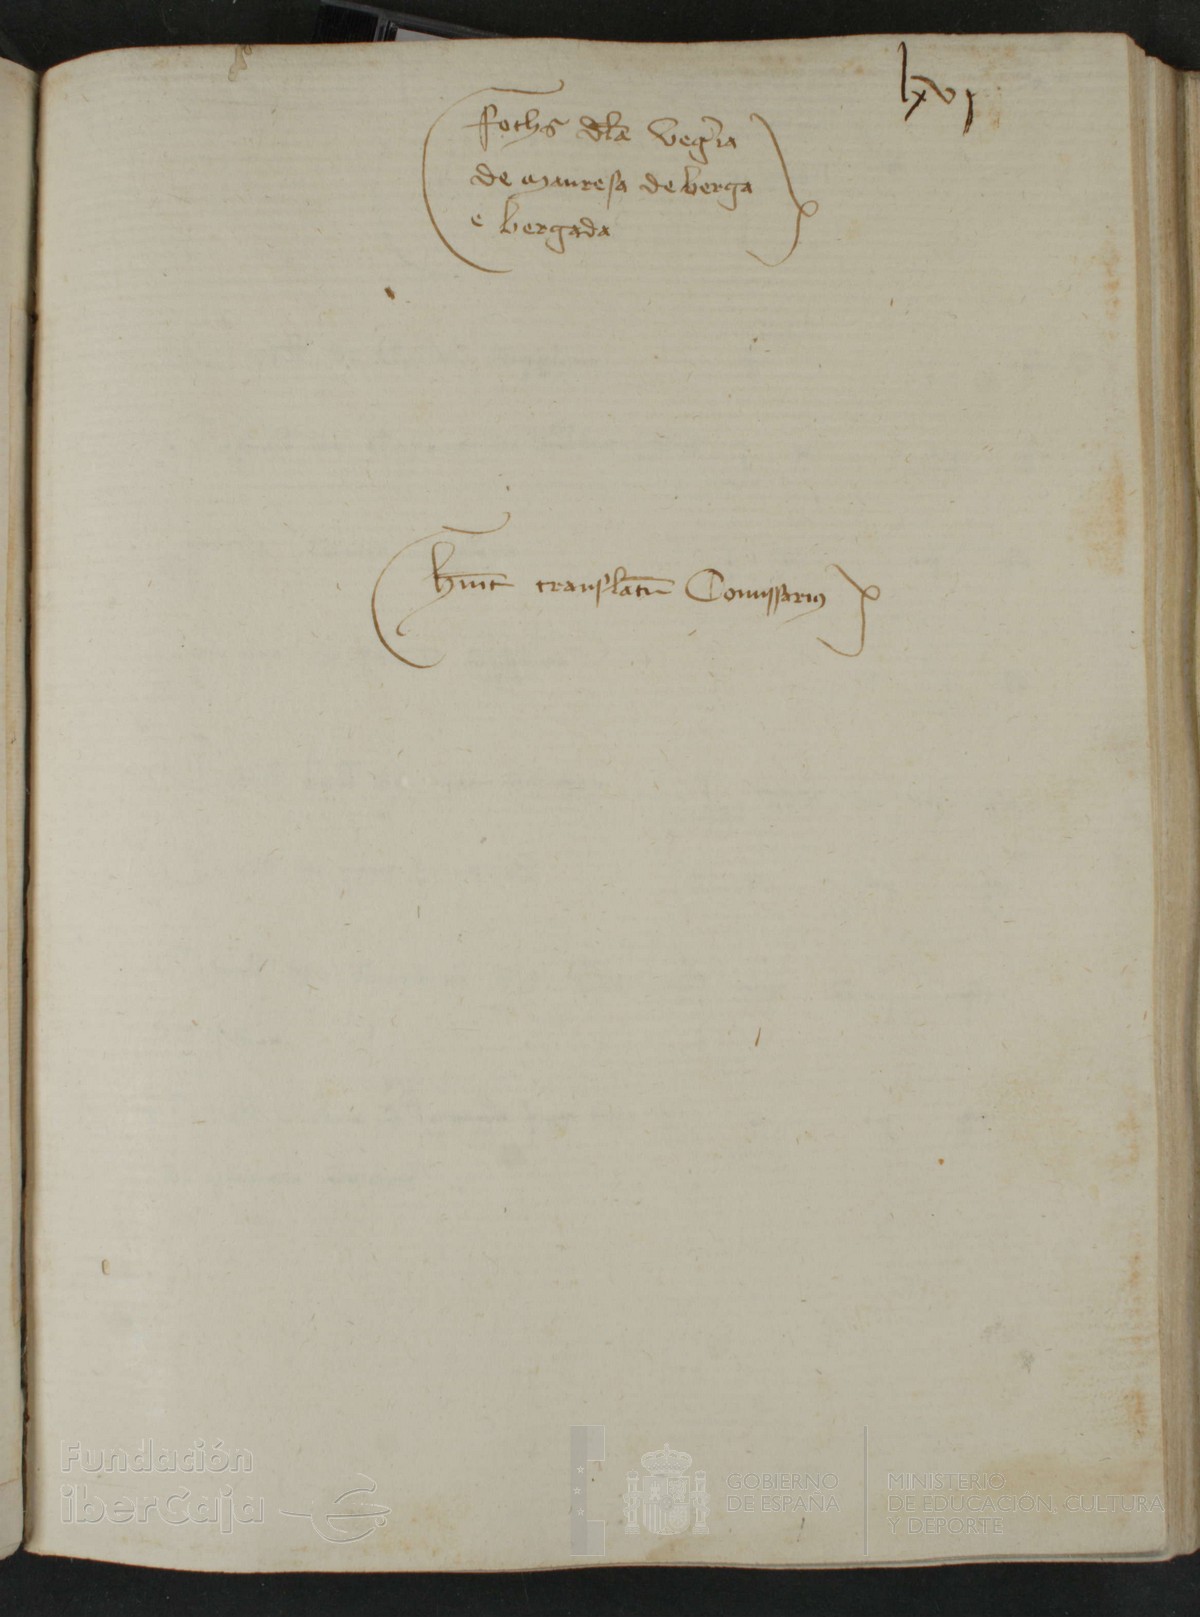 lxvj
ffochs dla vegria
de manresa de berga
e bergada
hnt translatu Comissarius
Fundación
iberCaja
GOBIERNO
DE ESPAÑA
MINISTERIO
DE EDUCACIÓN, CULTURA
Y DEPORTE